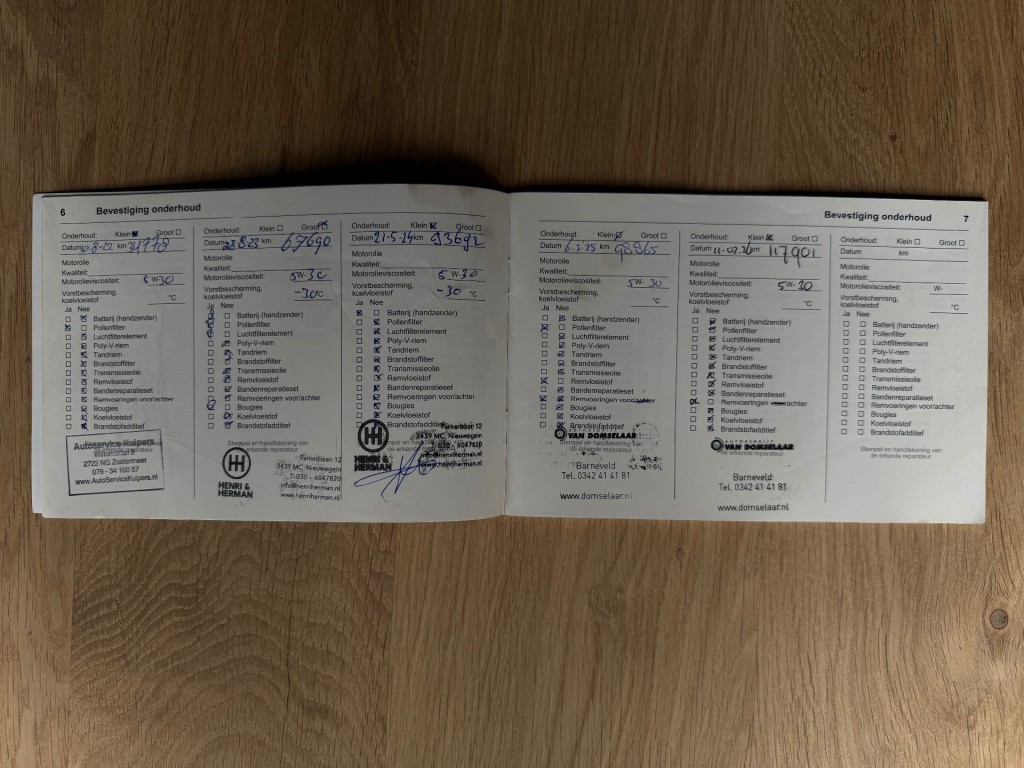 6 Bevestiging onderhoud
Onderhoud: Klein Groot
Datum km 34778
Motorolie
Kwaliteit:
Motorolieviscositeit: 5W-30
Vorstbescherming,
koelvloeistof °C
Ja Nee
Batterij (handzender)
Pollenfilter
Luchtfilterelement
Poly-V-riem
Tandriem
Brandstoffilter
Transmissieolie
Remvloeistof
Bandenreparatieset
Remvoeringen voor/achter
Bougies
Koelvloeistof
Brandstofadditief
Autoservice Kuipers
2722 NG Zoetermeer
079 - 34 100 57
www.AutoServiceKuipers.nl
Onderhoud: Klein Groot
Datum 28-8-23 km 67690
Motorolie
Kwaliteit:
Motorolieviscositeit: 5W-30
Vorstbescherming,
koelvloeistof -30°C
Ja Nee
Batterij (handzender)
Pollenfilter
Luchtfilterelement
Poly-V-riem
Tandriem
Brandstoffilter
Transmissieolie
Remvloeistof
Bandenreparatieset
Remvoeringen voor/achter
Bougies
Koelvloeistof
Brandstofadditief
Stempel en handtekening van
de erkende reparateur
HENRI &
HERMAN
Parkerbaan 12
3439 MC, Nieuwegein
T: 030 - 6047820
info@henriherman.nl
www.henriherman.nl
Onderhoud: Klein Groot
Datum 21-5-24 km 93692
Motorolie
Kwaliteit:
Motorolieviscositeit: 5W-30
Vorstbescherming,
koelvloeistof -30 °C
Ja Nee
Batterij (handzender)
Pollenfilter
Luchtfilterelement
Poly-V-riem
Tandriem
Brandstoffilter
Transmissieolie
Remvloeistof
Bandenreparatieset
Remvoeringen voor/achter
Bougies
Koelvloeistof
Brandstofadditief
HENRI &
HERMAN
Parkerbaan 12
3439 MC, Nieuwegein
030 - 6047820
info@henriherman.nl
www.henriherman.nl
Bevestiging onderhoud 7
Onderhoud: Klein Groot
Datum km 98865
Motorolie
Kwaliteit:
Motorolieviscositeit: 5W-30
Vorstbescherming,
koelvloeistof °C
Ja Nee
Batterij (handzender)
Pollenfilter
Luchtfilterelement
Poly-V-riem
Tandriem
Brandstoffilter
Transmissieolie
Remvloeistof
Bandenreparatieset
Remvoeringen voor/achter
Bougies
Koelvloeistof
Brandstofadditief
VAN DOMSELAAR
Stempel en handtekening van
de erkende reparateur
Barneveld
Tel. 0342 41 41 81
www.domselaar.nl
Onderhoud: Klein Groot
Datum 11-02-26 km 117901
Motorolie
Kwaliteit:
Motorolieviscositeit: 5W-30
Vorstbescherming,
koelvloeistof °C
Ja Nee
Batterij (handzender)
Pollenfilter
Luchtfilterelement
Poly-V-riem
Tandriem
Brandstoffilter
Transmissieolie
Remvloeistof
Bandenreparatieset
Remvoeringen voor/achter
Bougies
Koelvloeistof
Brandstofadditief
AUTOBEDRIJF
VAN DOMSELAAR
de erkende reparateur
Barneveld
Tel. 0342 41 41 81
www.domselaar.nl
Onderhoud: Klein Groot
Datum km
Motorolie
Kwaliteit:
Motorolieviscositeit: W-
Vorstbescherming,
koelvloeistof °C
Ja Nee
Batterij (handzender)
Pollenfilter
Luchtfilterelement
Poly-V-riem
Tandriem
Brandstoffilter
Transmissieolie
Remvloeistof
Bandenreparatieset
Remvoeringen voor/achter
Bougies
Koelvloeistof
Brandstofadditief
Stempel en handtekening van
de erkende reparateur